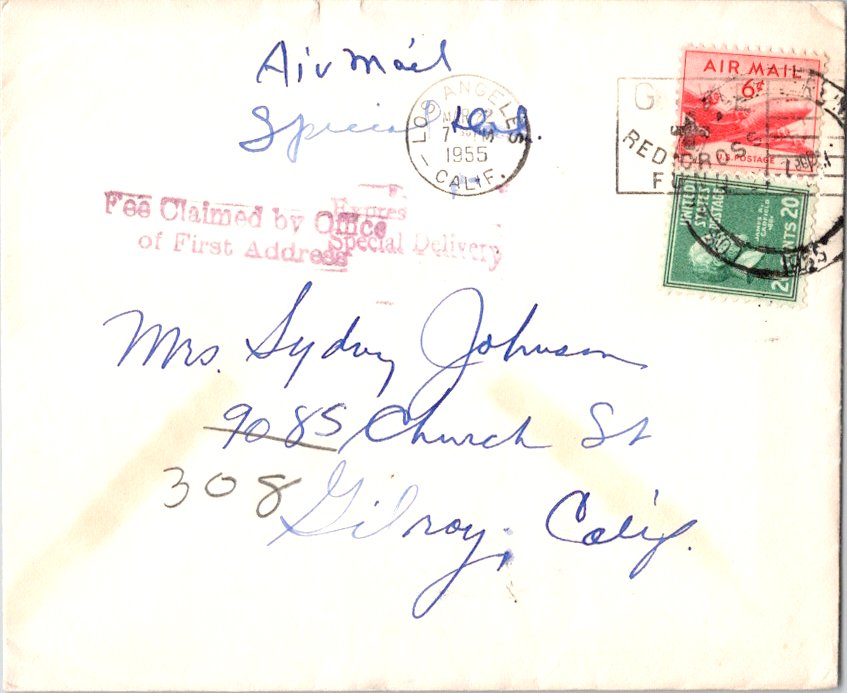 Air Mail
Special Del.
LOS ANGELES
MAR 2
7 PM
1955
CALIF.
G
RED CROSS
AIR MAIL
6¢
U.S. POSTAGE
UNITED STATES POSTAGE
JAMES A. GARFIELD
CENTS 20
1955
Fee Claimed by Office
of First Address
Expres
Special Delivery
Mrs. Sydney Johnson
9085 Church St
308
Gilroy, Calif.